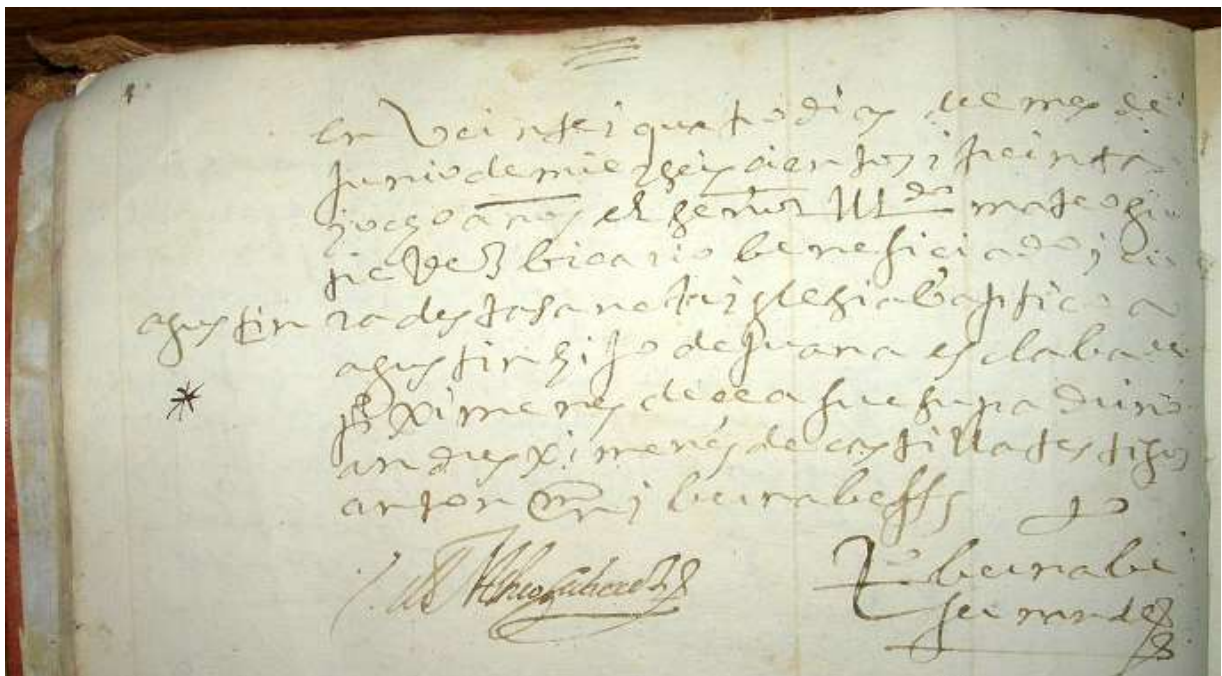 en veinte i quatro dias del mes de
Junio de mil y seis cientos i treinta
y ocho años el señor Ldo mateo gu
tierrez bicario beneficiado i cu
agustin
ra desta santa iglesia baptico a
agustin hijo de Juana esclaba de
ximenes de fue su padrino
andres ximenes de castilla testigos
anton i bernabe
bernabe
fernandez